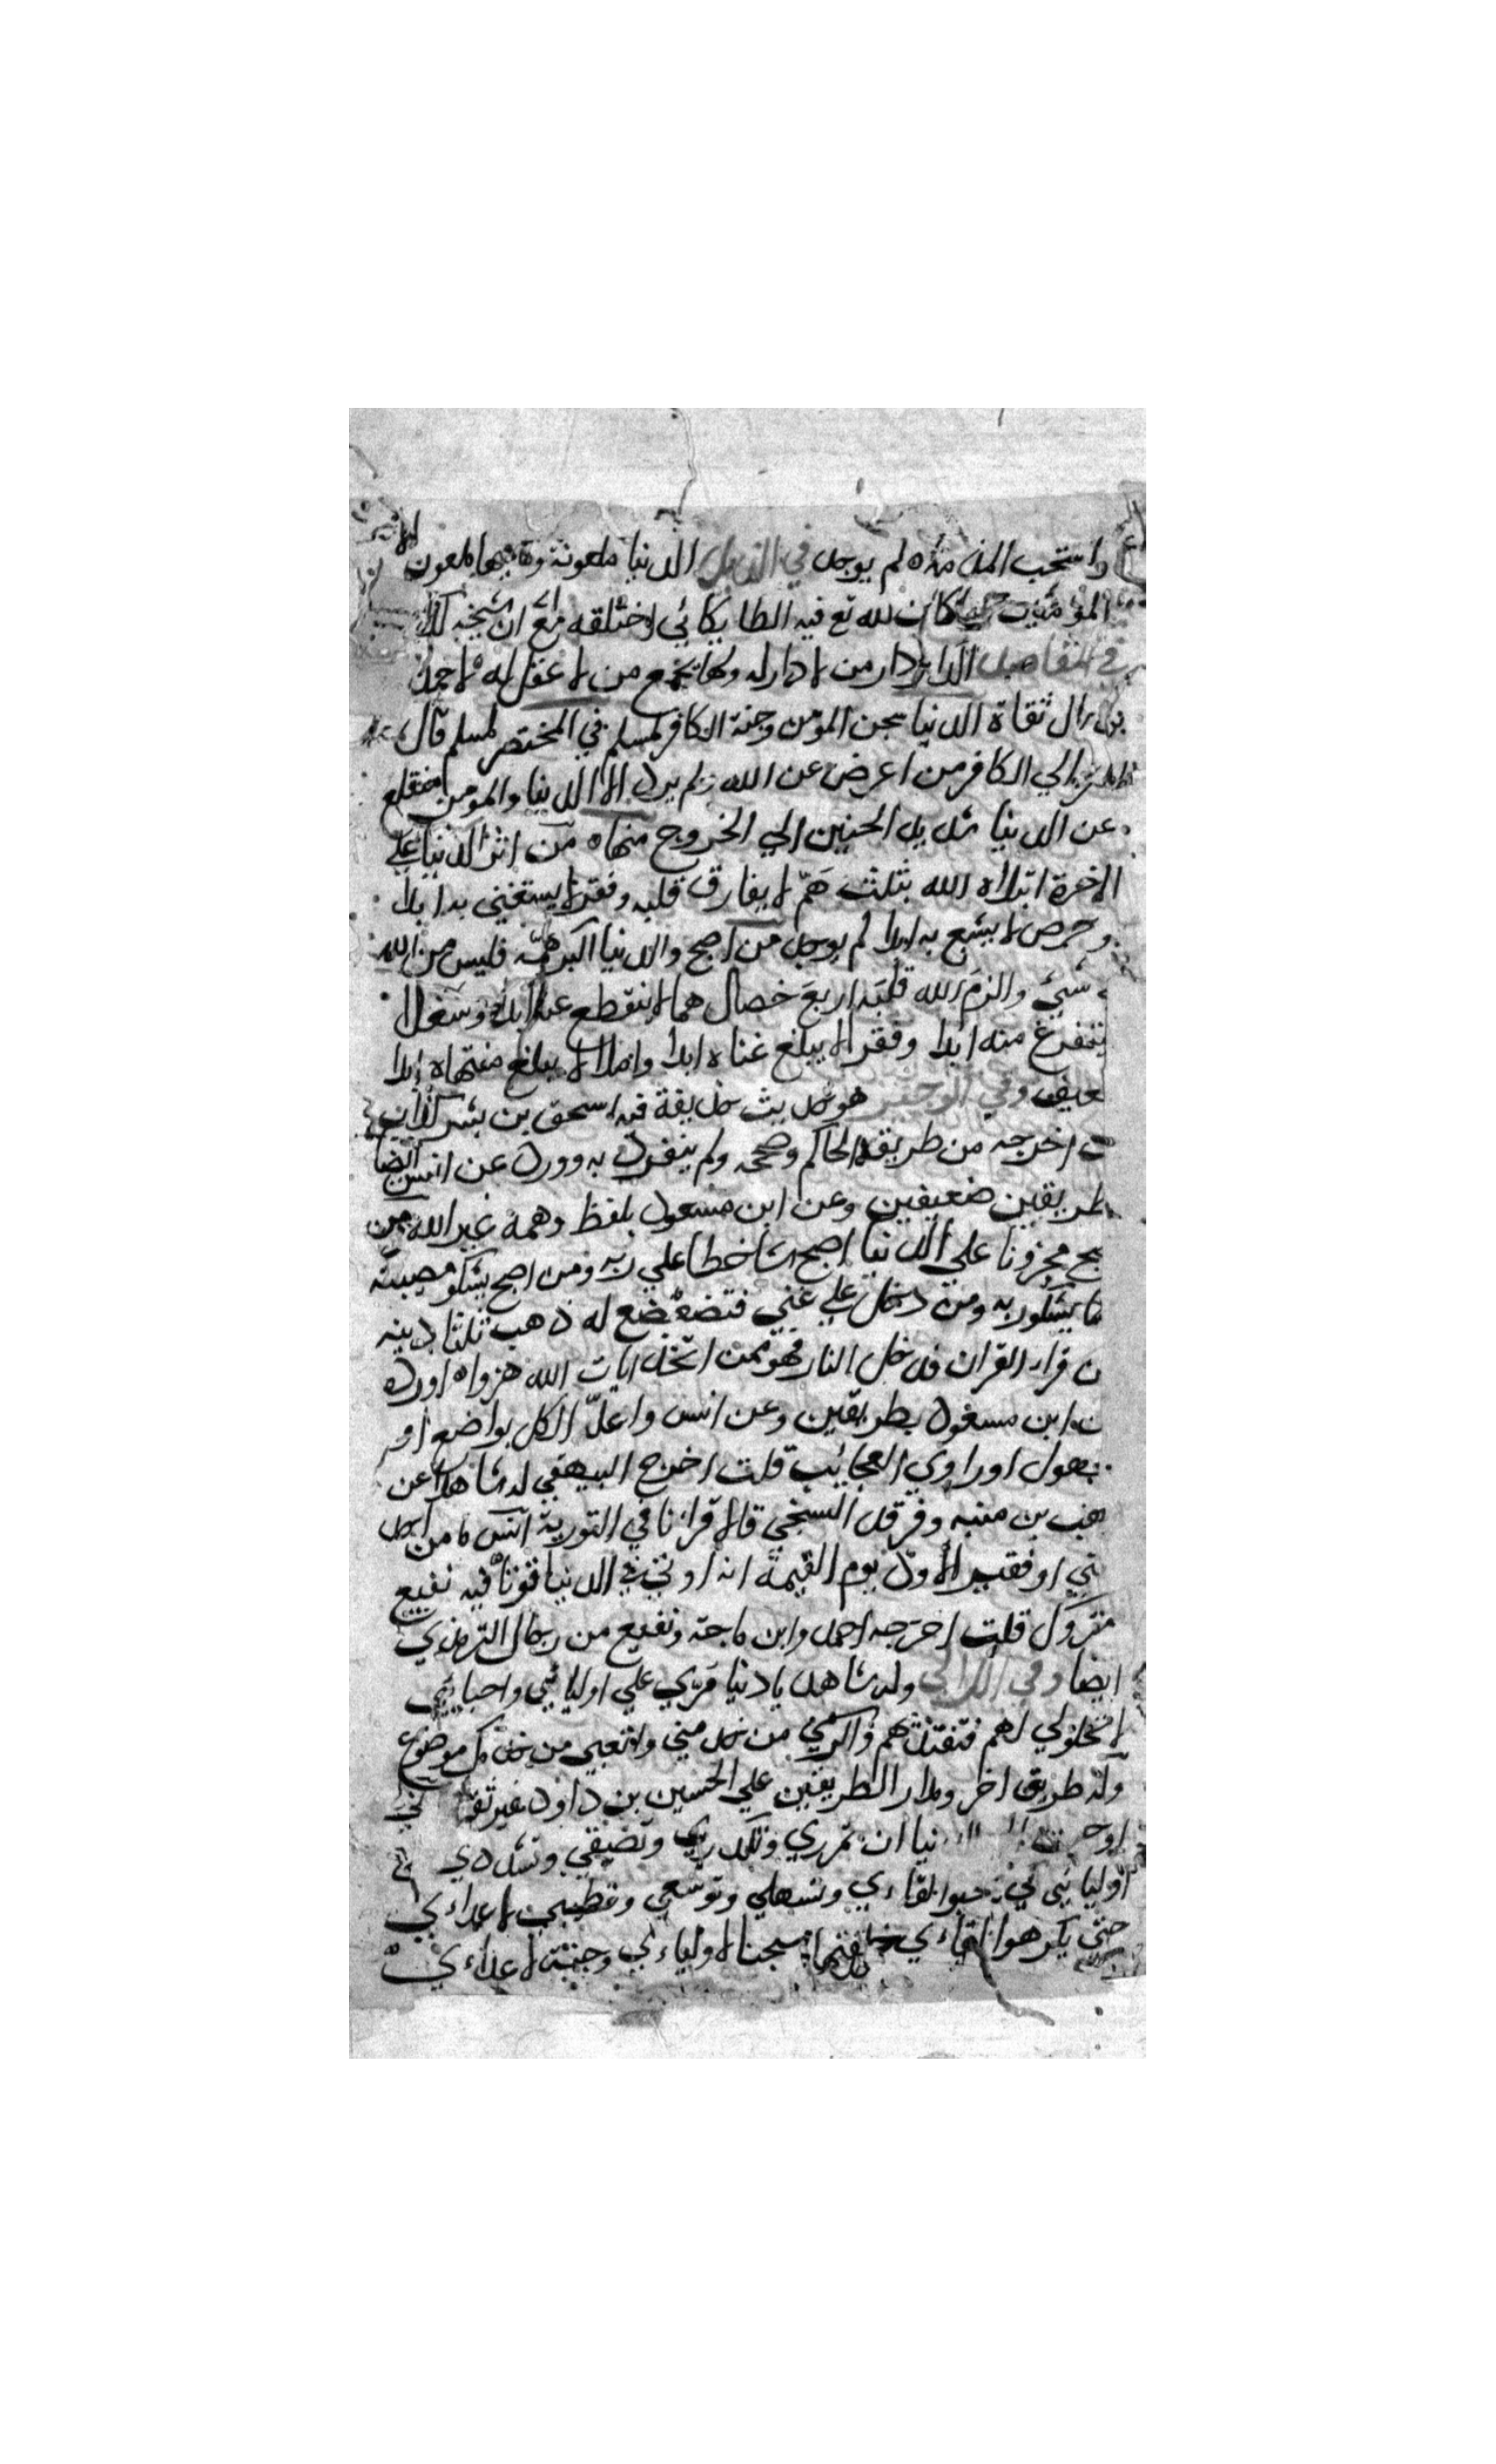 واستحب المذمة ه لم يوجد في الذيل الدنيا ملعونة وما فيها ملعون
المؤمنين كان لله تع فيه الطايكاني اختلقه مع ان شيخه كذاب
في المقاصد الدنيا دار من لا دار له ولها يجمع من لا عقل له لاحمد
برجال ثقاة الدنيا سجن المؤمن وجنة الكافر لمسلم في المختصر لمسلم قال
الكافر من اعرض عن الله ولم يرد الا الدنيا والمؤمن منقلع
عن الدنيا شديد الحنين الي الخروج منها ه من اثر الدنيا علي
الاخرة ابتلاه الله بثلث هم لا يفارق قلبه وفقر لا يستغني به ابدا
وحرص لا يشبع به ابدا لم يوجد من اصبح والدنيا اكبر همه فليس من الله
شيي والزم الله قلبه اربع خصال هما لا ينقطع عنه ابدا وشغلا لا
يتفرغ منه ابدا وفقرا لا يبلغ غناه ابدا واملا لا يبلغ منتهاه ابدا
ضعيف وفي الوجيز هو حديث حذيفة فيه اسحق بن بشر كذاب
اخرجه من طريقه الحاكم وصححه ولم ينفرد به وورد عن انس ايضا
بطريقين ضعيفين وعن ابن مسعود بلفظ وهمه غير الله من
اصبح محزونا علي الدنيا اصبح ساخطا علي ربه ومن اصبح يشكو مصيبته
فانما يشكو ربه ومن دخل علي غني فتضعضع له ذهب ثلثا دينه
ومن قرا القران فدخل النار فهو ممن اتخذ ايات الله هزوا ه اورده
عن ابن مسعود بطريقين وعن انس واعل الكل بواضع او
مجهول او راوي العجائب قلت اخرج البيهقي له شاهدا عن
وهب بن منبه وفرقد السنجي قالا قرانا في التورية انس ما من احد
غني او فقير الا ود يوم القيمة انه اوتي في الدنيا قوتا فيه نفيع
متروك قلت اخرجه احمد وابن ماجة ونفيع من رجال الترمذي
ايضا وفي اللالي وله شاهد يا دنيا مري علي اوليائي واحبائي
لا تحلولي لهم فتفتنهم واكرمي من خدمني واتعبي من خدمك موضوع
وله طريق اخر ومدار الطريقين علي الحسين بن داود غير ثقة
اوحي الله الي الدنيا ان تمرري وتكدري وتضيقي وتشددي علي
اوليائي كي يحبوا لقاءي وتسهلي وتوسعي وتطيبي لاعداءي
حتي يكرهوا لقاءي خلقتها سجنا لاولياءي وجنة لاعداءي